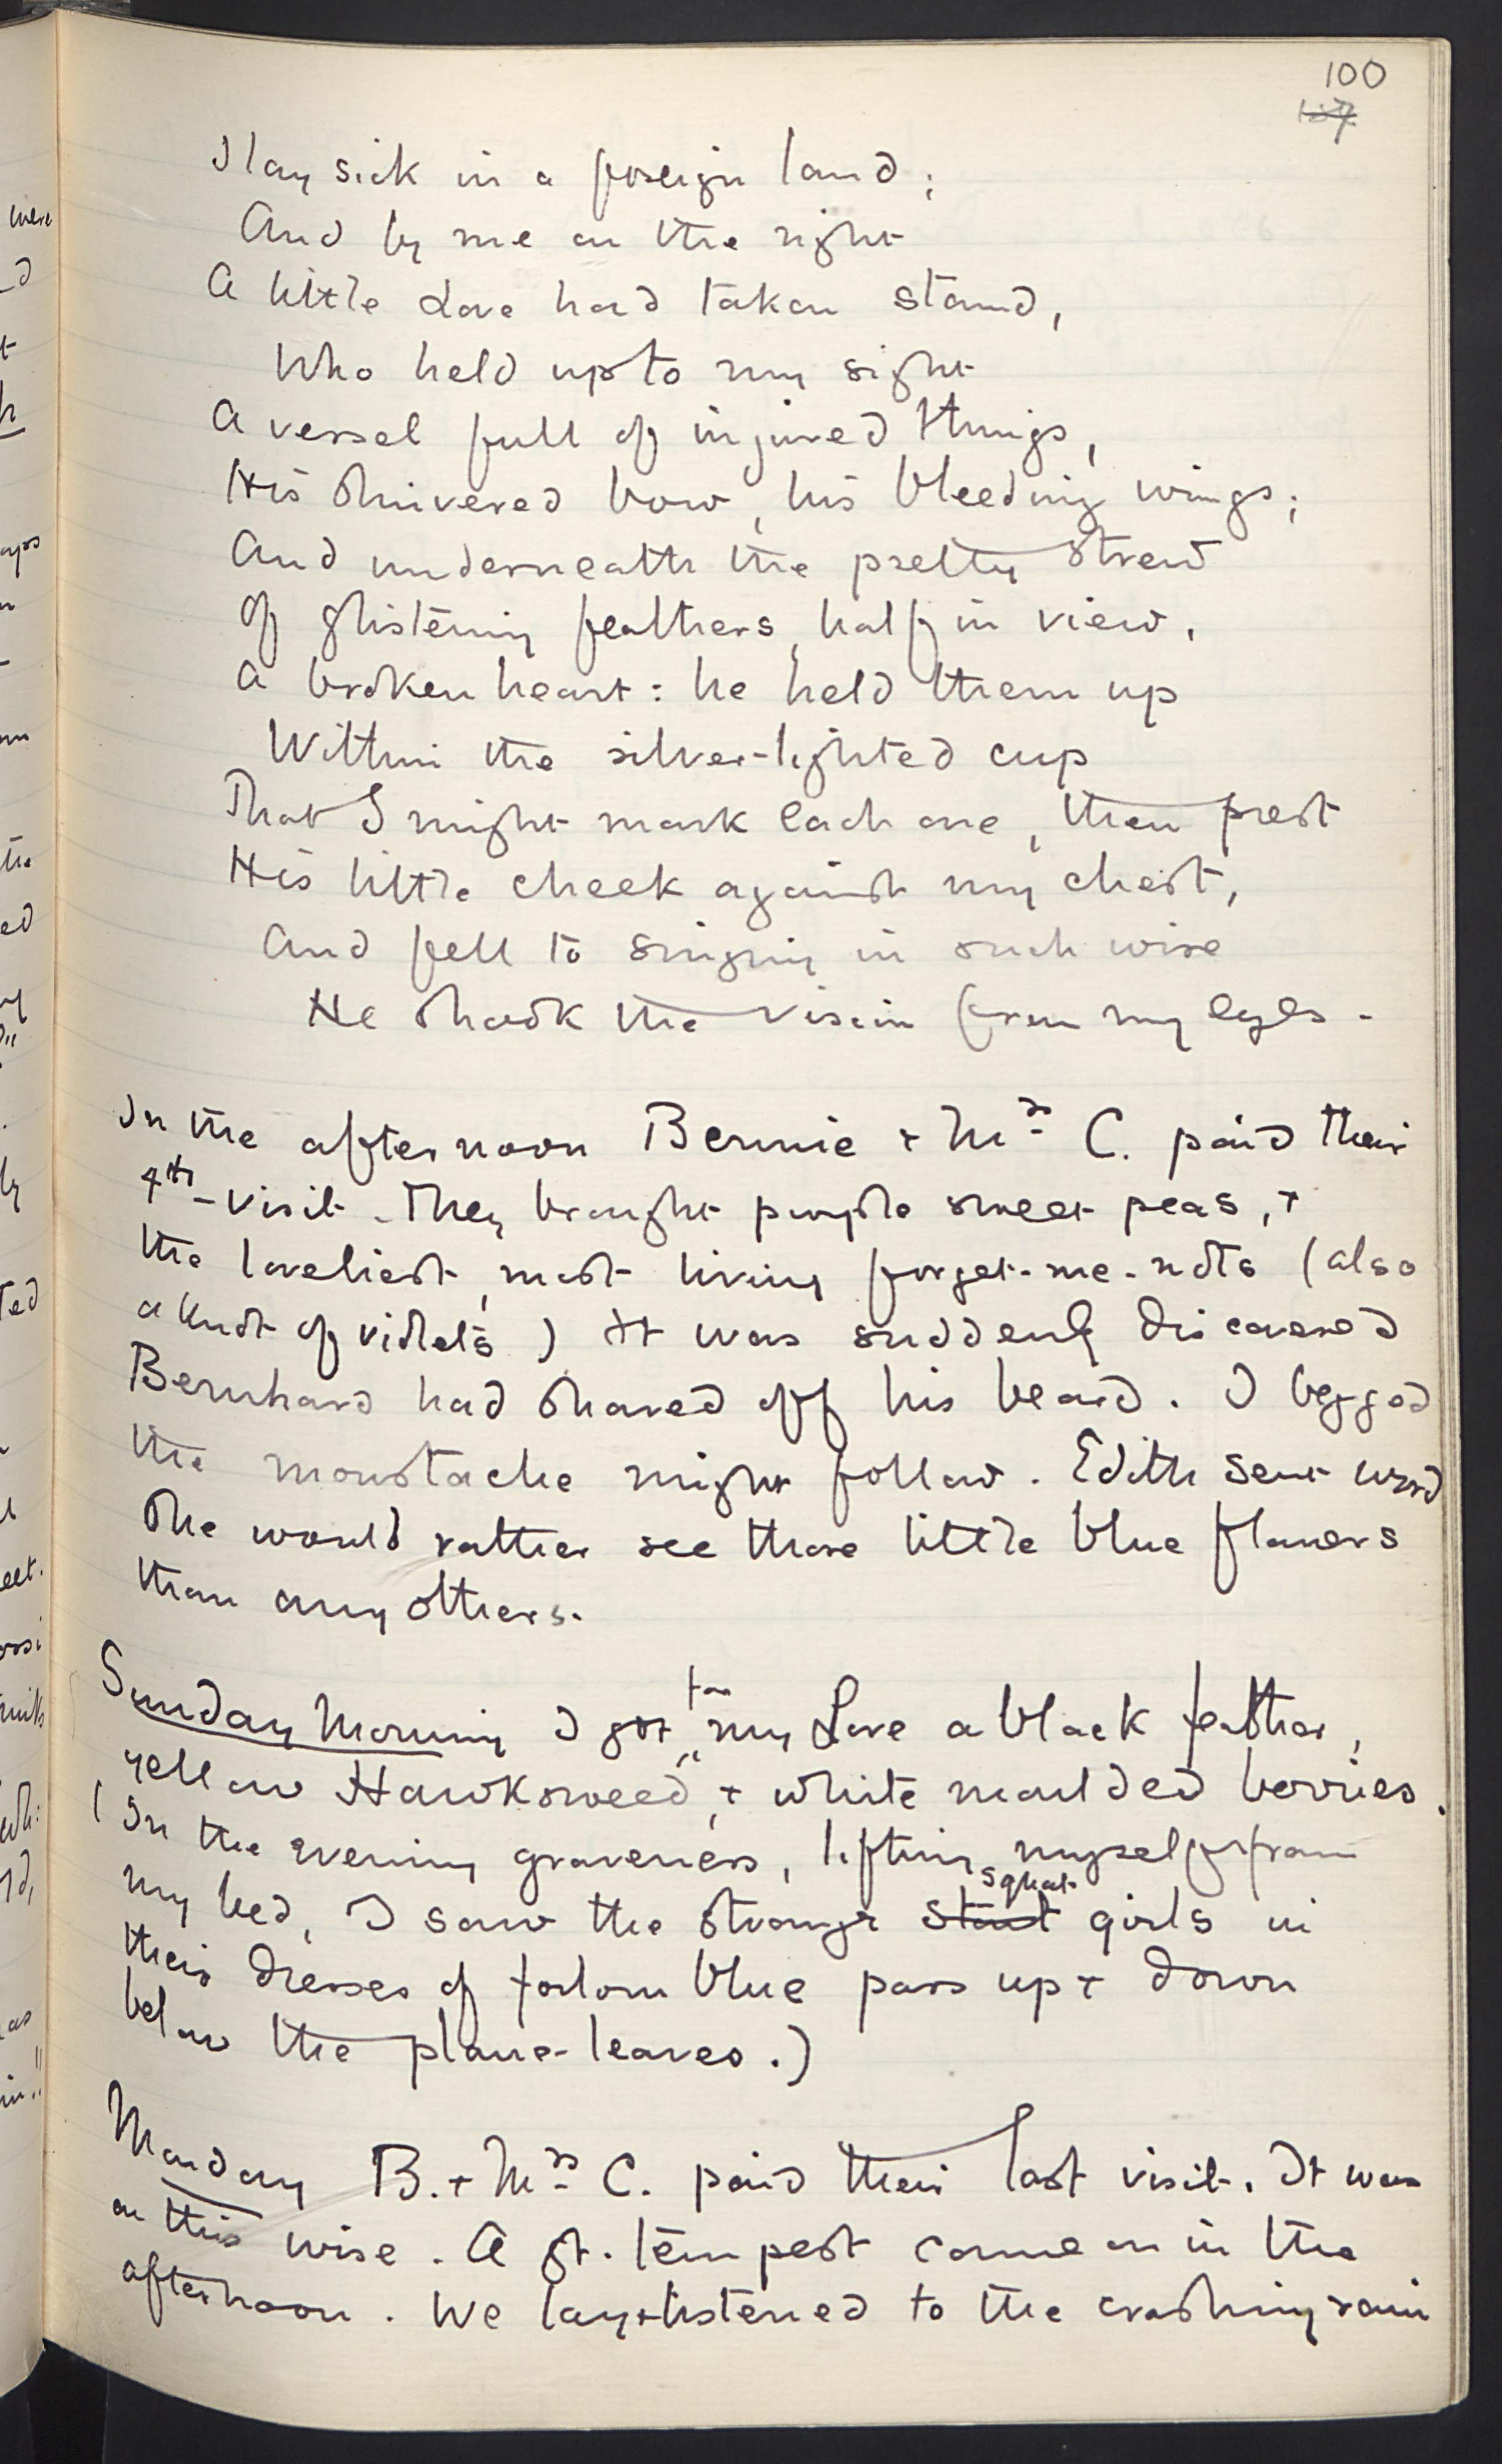 100
I lay sick in a foreign land;
And by me on the right
A little Love had taken stand,
Who held up to my sight
A vessel full of injured things,
His shivered bow, his bleeding wings;
And underneath the pretty strew
Of glistening feathers, half in view,
A broken heart: he held them up
Within the silver-lighted cup
That I might mark each one, then prest
His little cheek against my chest,
And fell to singing in such wise
He shook the vision from my eyes.
In the afternoon Bernie + Mrs C. paid their
4th visit. They brought purple sweet peas, +
the loveliest, most living forget-me-nots (also
a knot of violets) It was suddenly discovered
Bernhard had shaved off his beard. I begged
the moustache might follow. Edith sent word
She would rather see those little blue flowers
than any others.
Sunday Morning I got for my Love a black feather,
yellow Hawksweed, + white moulded berries.
(In the evening graveness, lifting myself from
my bed, I saw the strange stout squat girls in
their dresses of forlorn blue pass up + down
below the plane-leaves.)
Monday B. + Mrs C. paid their last visit. It was
on this wise. A gt. tempest came on in the
afternoon. We lay + listened to the crashing rain